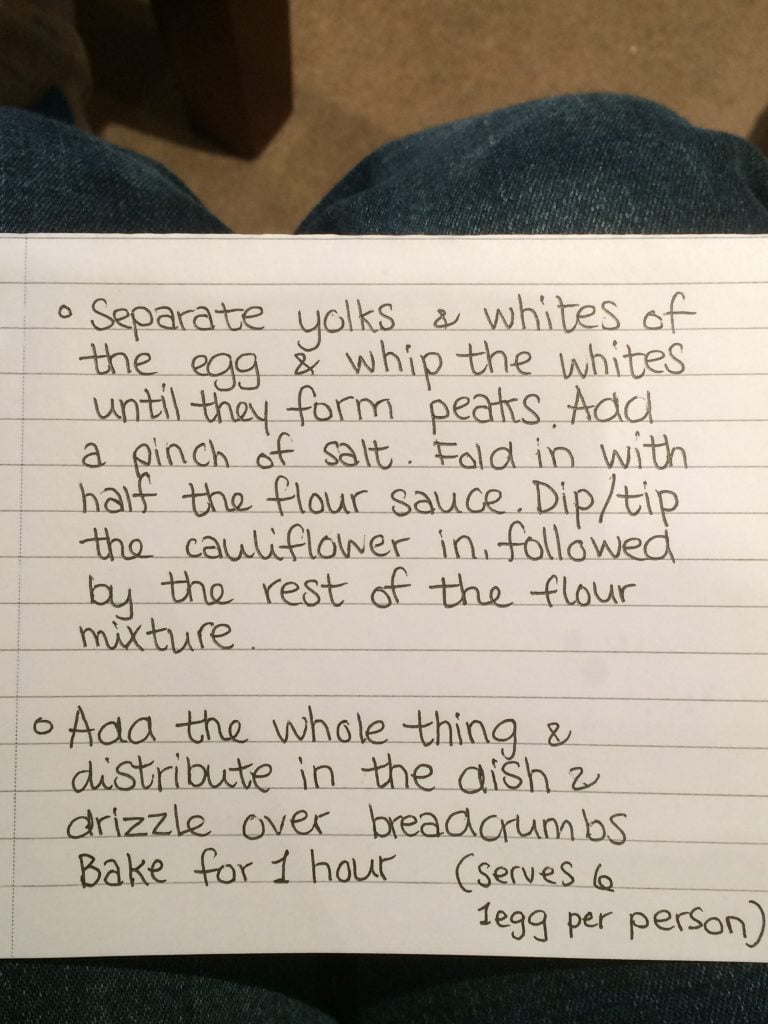 ° Separate yolks & whites of
the egg & whip the whites
until they form peaks. Add
a pinch of salt. Fold in with
half the flour sauce. Dip/tip
the cauliflower in, followed
by the rest of the flour
mixture.
° Add the whole thing &
distribute in the dish &
drizzle over breadcrumbs
Bake for 1 hour (serves 6
1egg per person)